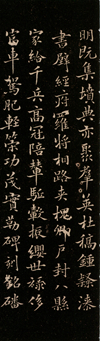 明既集墳典亦聚羣英杜稿鍾隸漆
書壁經府羅將相路夾槐卿戶封八縣
家給千兵高冠陪輦驅轂振纓世祿侈
富車駕肥輕策功茂實勒碑刻銘磻